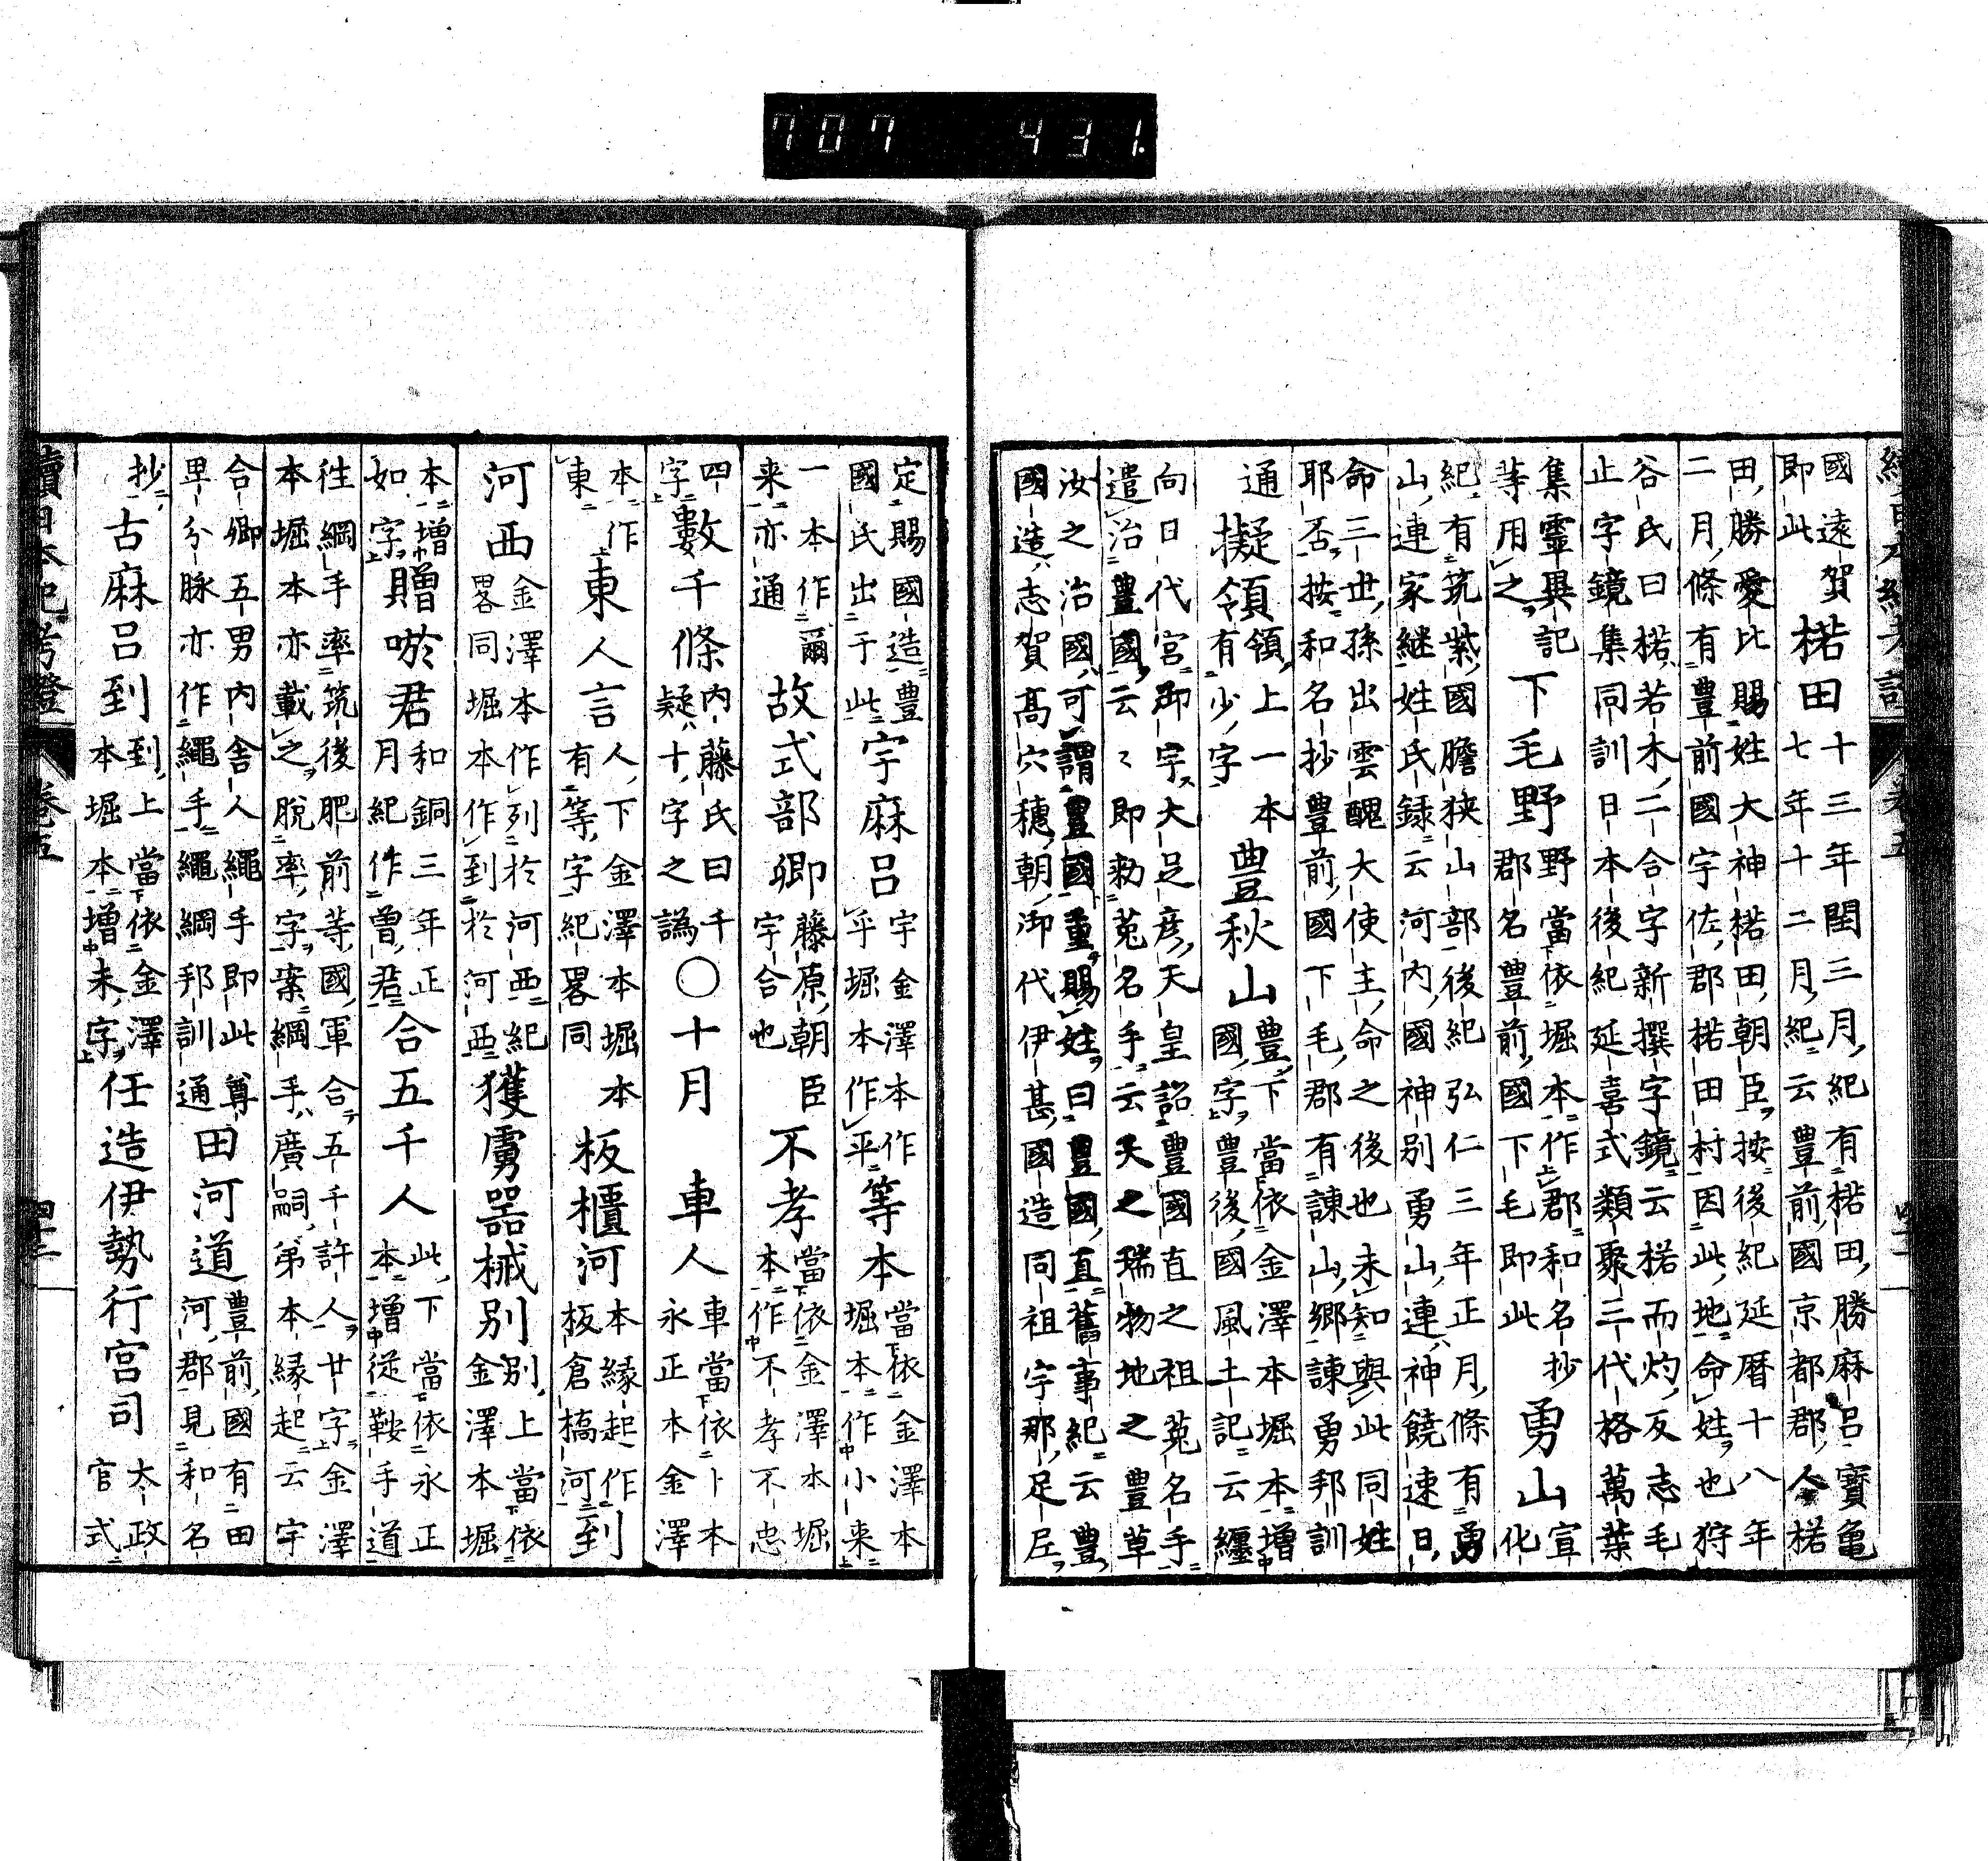 國遠賀即此楉田十三年閏三月紀有楉田勝麻呂寶龜七年十二月紀云豐前國京都郡人楉
田勝愛比賜姓大神楉田朝臣按後紀延暦十八年二月條有豐前國宇佐郡楉田村因此地命姓也狩
谷氏曰楉若木二合字新撰字鏡云楉而灼反志毛止字鏡集同訓日本後紀延喜式類聚三代格萬葉
集靈異記等用之下毛野野當依堀本作郡和名抄郡名豐前國下毛即此勇山宣化
紀有筑紫國膽狹山部後紀弘仁三年正月條有勇山連家継姓氏録云河内國神別勇山連神饒速日
命三世孫出雲醜大使主命之後也未知與此同姓耶否按和名抄豐前國下毛郡有諫山郷諫勇邦訓
通擬領領上一本有少字豐秋山豐下當依金澤本堀本增國字豐後國風土記云纏
向日代宮御宇大足彦天皇詔豐國直之祖菟名手遣治豐國云〻即勅菟名手云天之瑞物地之豐草
汝之治國可謂豐國重賜姓曰豐國直舊事紀云豐國造志賀高穴穗朝御代伊甚國造同祖宇那足尼
定賜國造豐國氏出于此宇麻呂宇金澤本作乎堀本作平等本當依金澤本堀本作小来
一本作爾来亦通故式部卿藤原朝臣宇合也不孝當依金澤本堀本作不孝不忠
四字數千條内藤氏曰千疑十字之譌〇十月車人車當依卜本永正本金澤
本作東東人言人下金澤本堀本有等字紀畧同板櫃河本縁起作板倉槗河到
河西金澤本作列於河西紀畧同堀本作到於河西獲虜器械別別上當依金澤本堀
本增如字贈唹君和銅三年正月紀作曾君合五千人此下當依永正本增従鞍手道
往綱手率筑後肥前等國軍合五千許人廿字金澤本堀本亦載之脫率字案綱手廣嗣弟本縁起云宇
合卿五男内舍人繩手即此尊卑分脉亦作繩手繩綱邦訓通田河道豐前國有田河郡見和名
抄古麻呂到到上當依金澤本堀本增未字任造伊勢行宮司太政官式
續日本紀考證 卷五 四十三